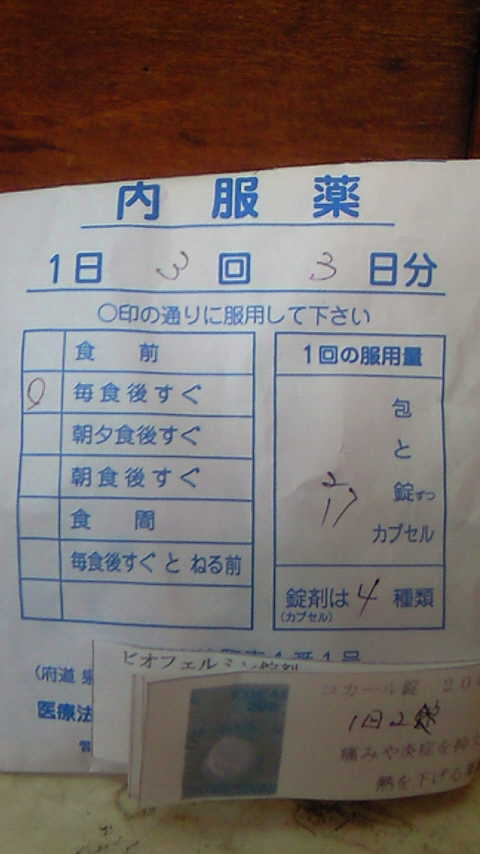 内服薬
1日 3 回 3 日分
○印の通りに服用して下さい
食 前
○ 毎食後すぐ
朝夕食後すぐ
朝食後すぐ
食 間
毎食後すぐ と ねる前
1回の服用量
包
と
錠ずつ
カプセル
錠剤は 4 種類
(カプセル)
(府道
医療法
ビオフェルミン錠剤
コカール錠 20
1日2
痛みや炎症を抑え
熱を下げる薬